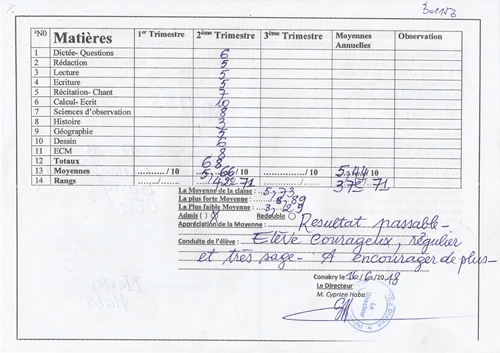 301153
N0 Matières 1er Trimestre 2ème Trimestre 3ème Trimestre Moyennes Annuelles Observation
1 Dictée- Questions 6
2 Rédaction 5
3 Lecture 5
4 Ecriture 5
5 Récitation- Chant 7
6 Calcul- Ecrit 10
7 Sciences d'observation 8
8 Histoire 3
9 Géographie 5
10 Dessin 6
11 ECM 8
12 Totaux 68
13 Moyennes ........../ 10 5,66/ 10 ........../ 10 5,44/ 10
14 Rangs ........../ 42e 71 ........../ 37e 71
La Moyenne de la classe : 5,73
La plus forte Moyenne : 8,89
La Plus faible Moyenne : 3,
Admis ( ) Redouble
Appréciation de la Moyenne : Resultat passable-
Conduite de l'élève : Elève courageux, régulier
et très sage- A encourager de plus-
Conakry le 16/6/2018
Le Directeur
M. Cyprien Haba
Le Directeur